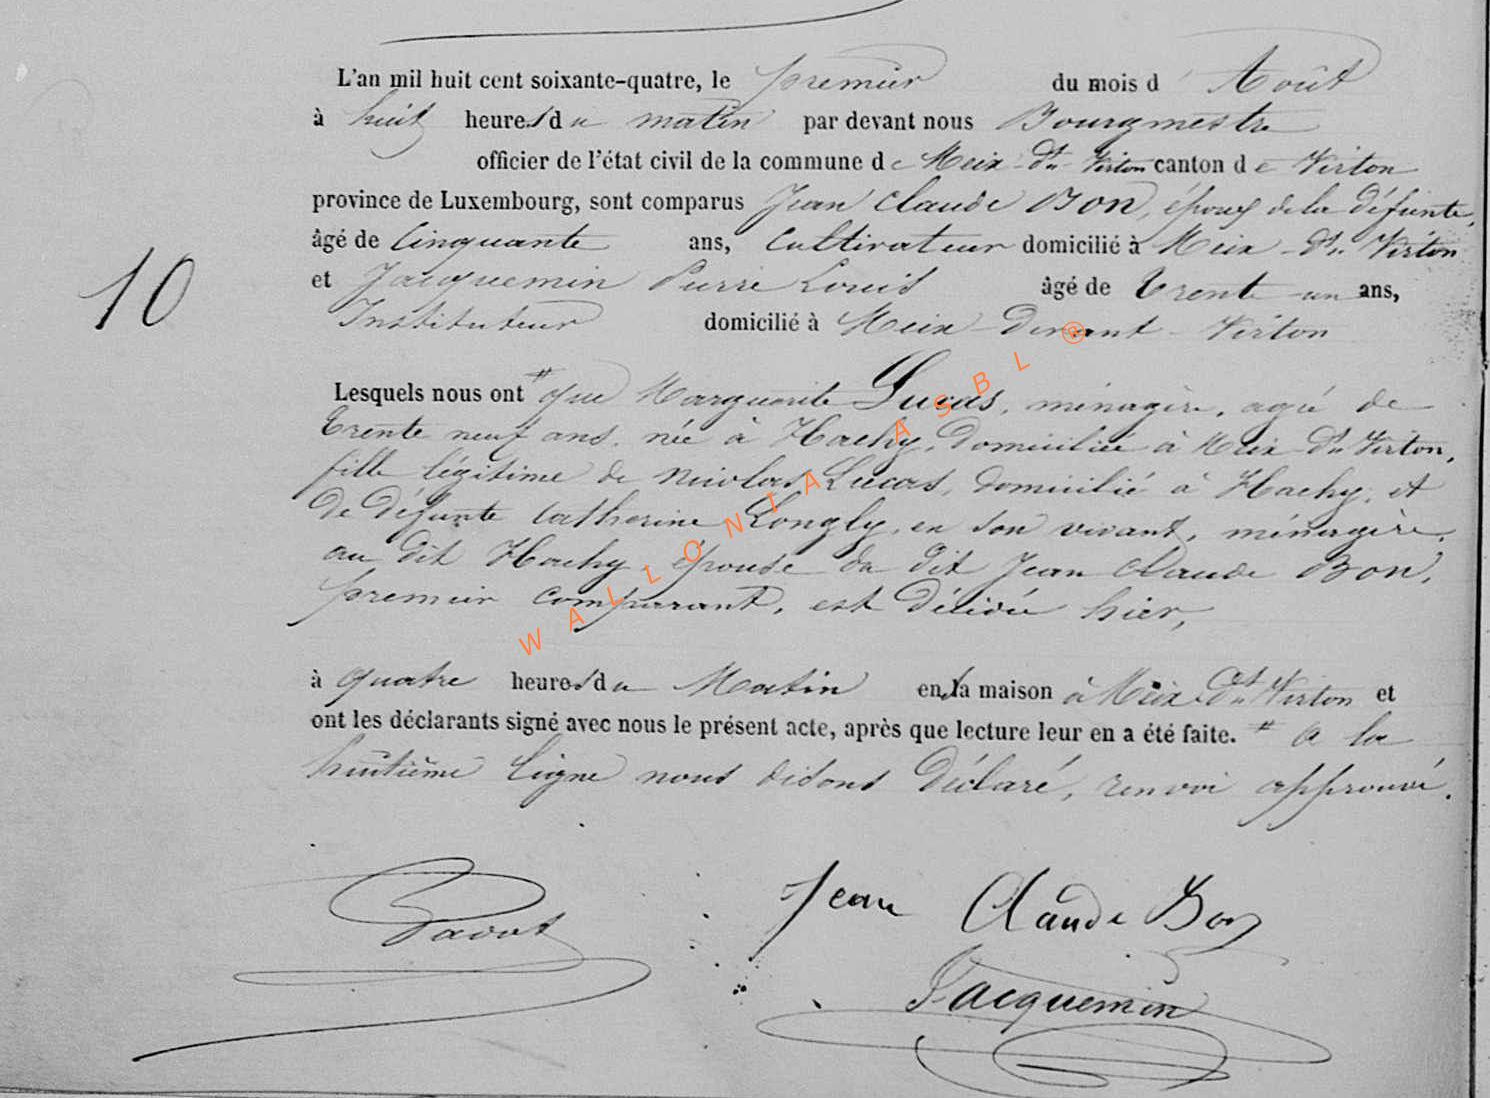 L'an mil huit cent soixante-quatre, le premier du mois d'Août
à huit heures du matin par devant nous Bourgmestre
officier de l'état civil de la commune de Meix-dt-Virton canton de Virton
province de Luxembourg, sont comparus Jean Claude Bon, époux de la défunte,
âgé de Cinquante ans, Cultivateur domicilié à Meix-dt-Virton
10
et Jacquemin Pierre Louis âgé de trente-un ans,
Instituteur domicilié à Meix-devant-Virton
Lesquels nous ont # que Marguerite Lucas, ménagère, agée de
trente neuf ans, née à Hachy, domiciliée à Meix-dt-Virton,
fille légitime de Nicolas Lucas, domicilié à Hachy, et
de défunte Catherine Longly, en son vivant, ménagère,
au dit Hachy, épouse du dit Jean Claude Bon,
premier comparant, est décédée hier,
à quatre heures du Matin en sa maison à Meix-dt-Virton et
ont les déclarants signé avec nous le présent acte, après que lecture leur en a été faite. # a la
huitième ligne nous disons déclaré, renvoi approuvé.
Jean Claude Bon
Jacquemin
WALLONIA ASBL ®